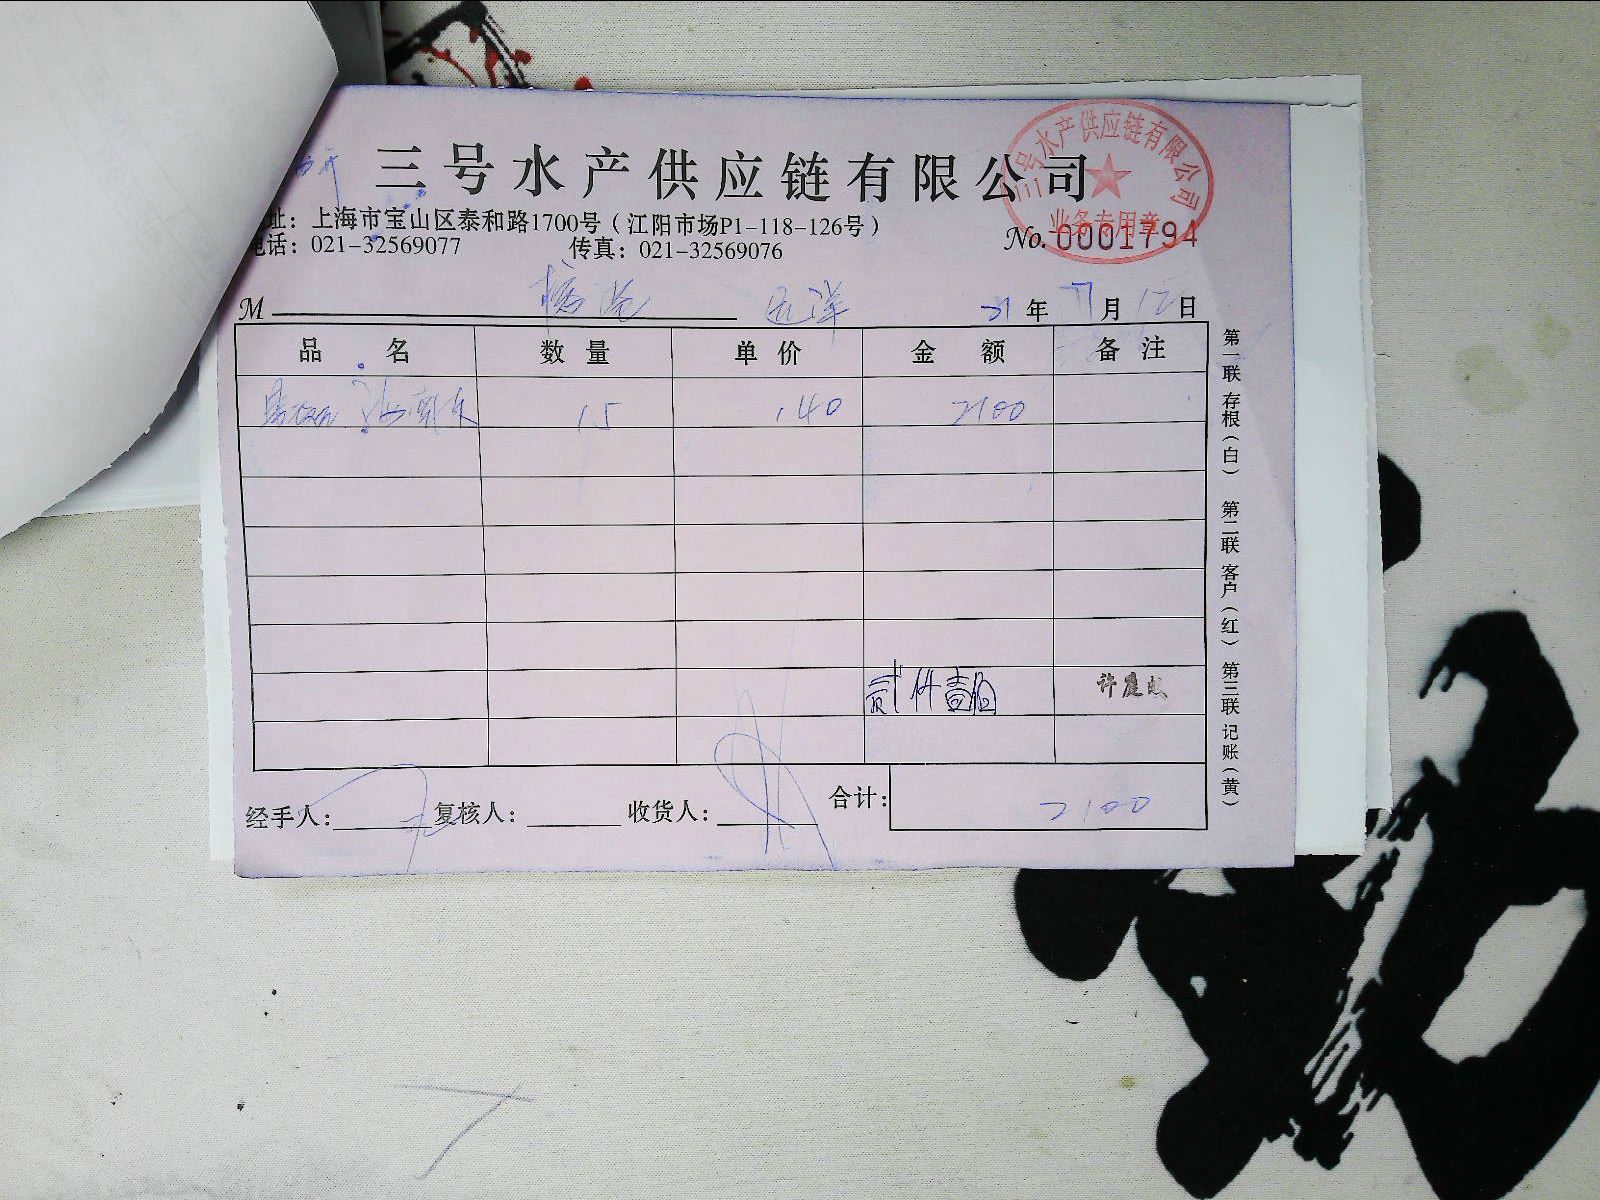 三号水产供应链有限公司
三号水产供应链有限公司
业务专用章
址：上海市宝山区泰和路1700号（江阳市场P1-118-126号）
电话：021-32569077 传真：021-32569076
No. 0001794
M 远洋 21年 月 日
品名 数量 单价 金额 备注
15 140 2100
贰仟壹佰
合计： 2100
经手人： 复核人： 收货人：
第一联 存根（白） 第二联 客户（红） 第三联 记账（黄）